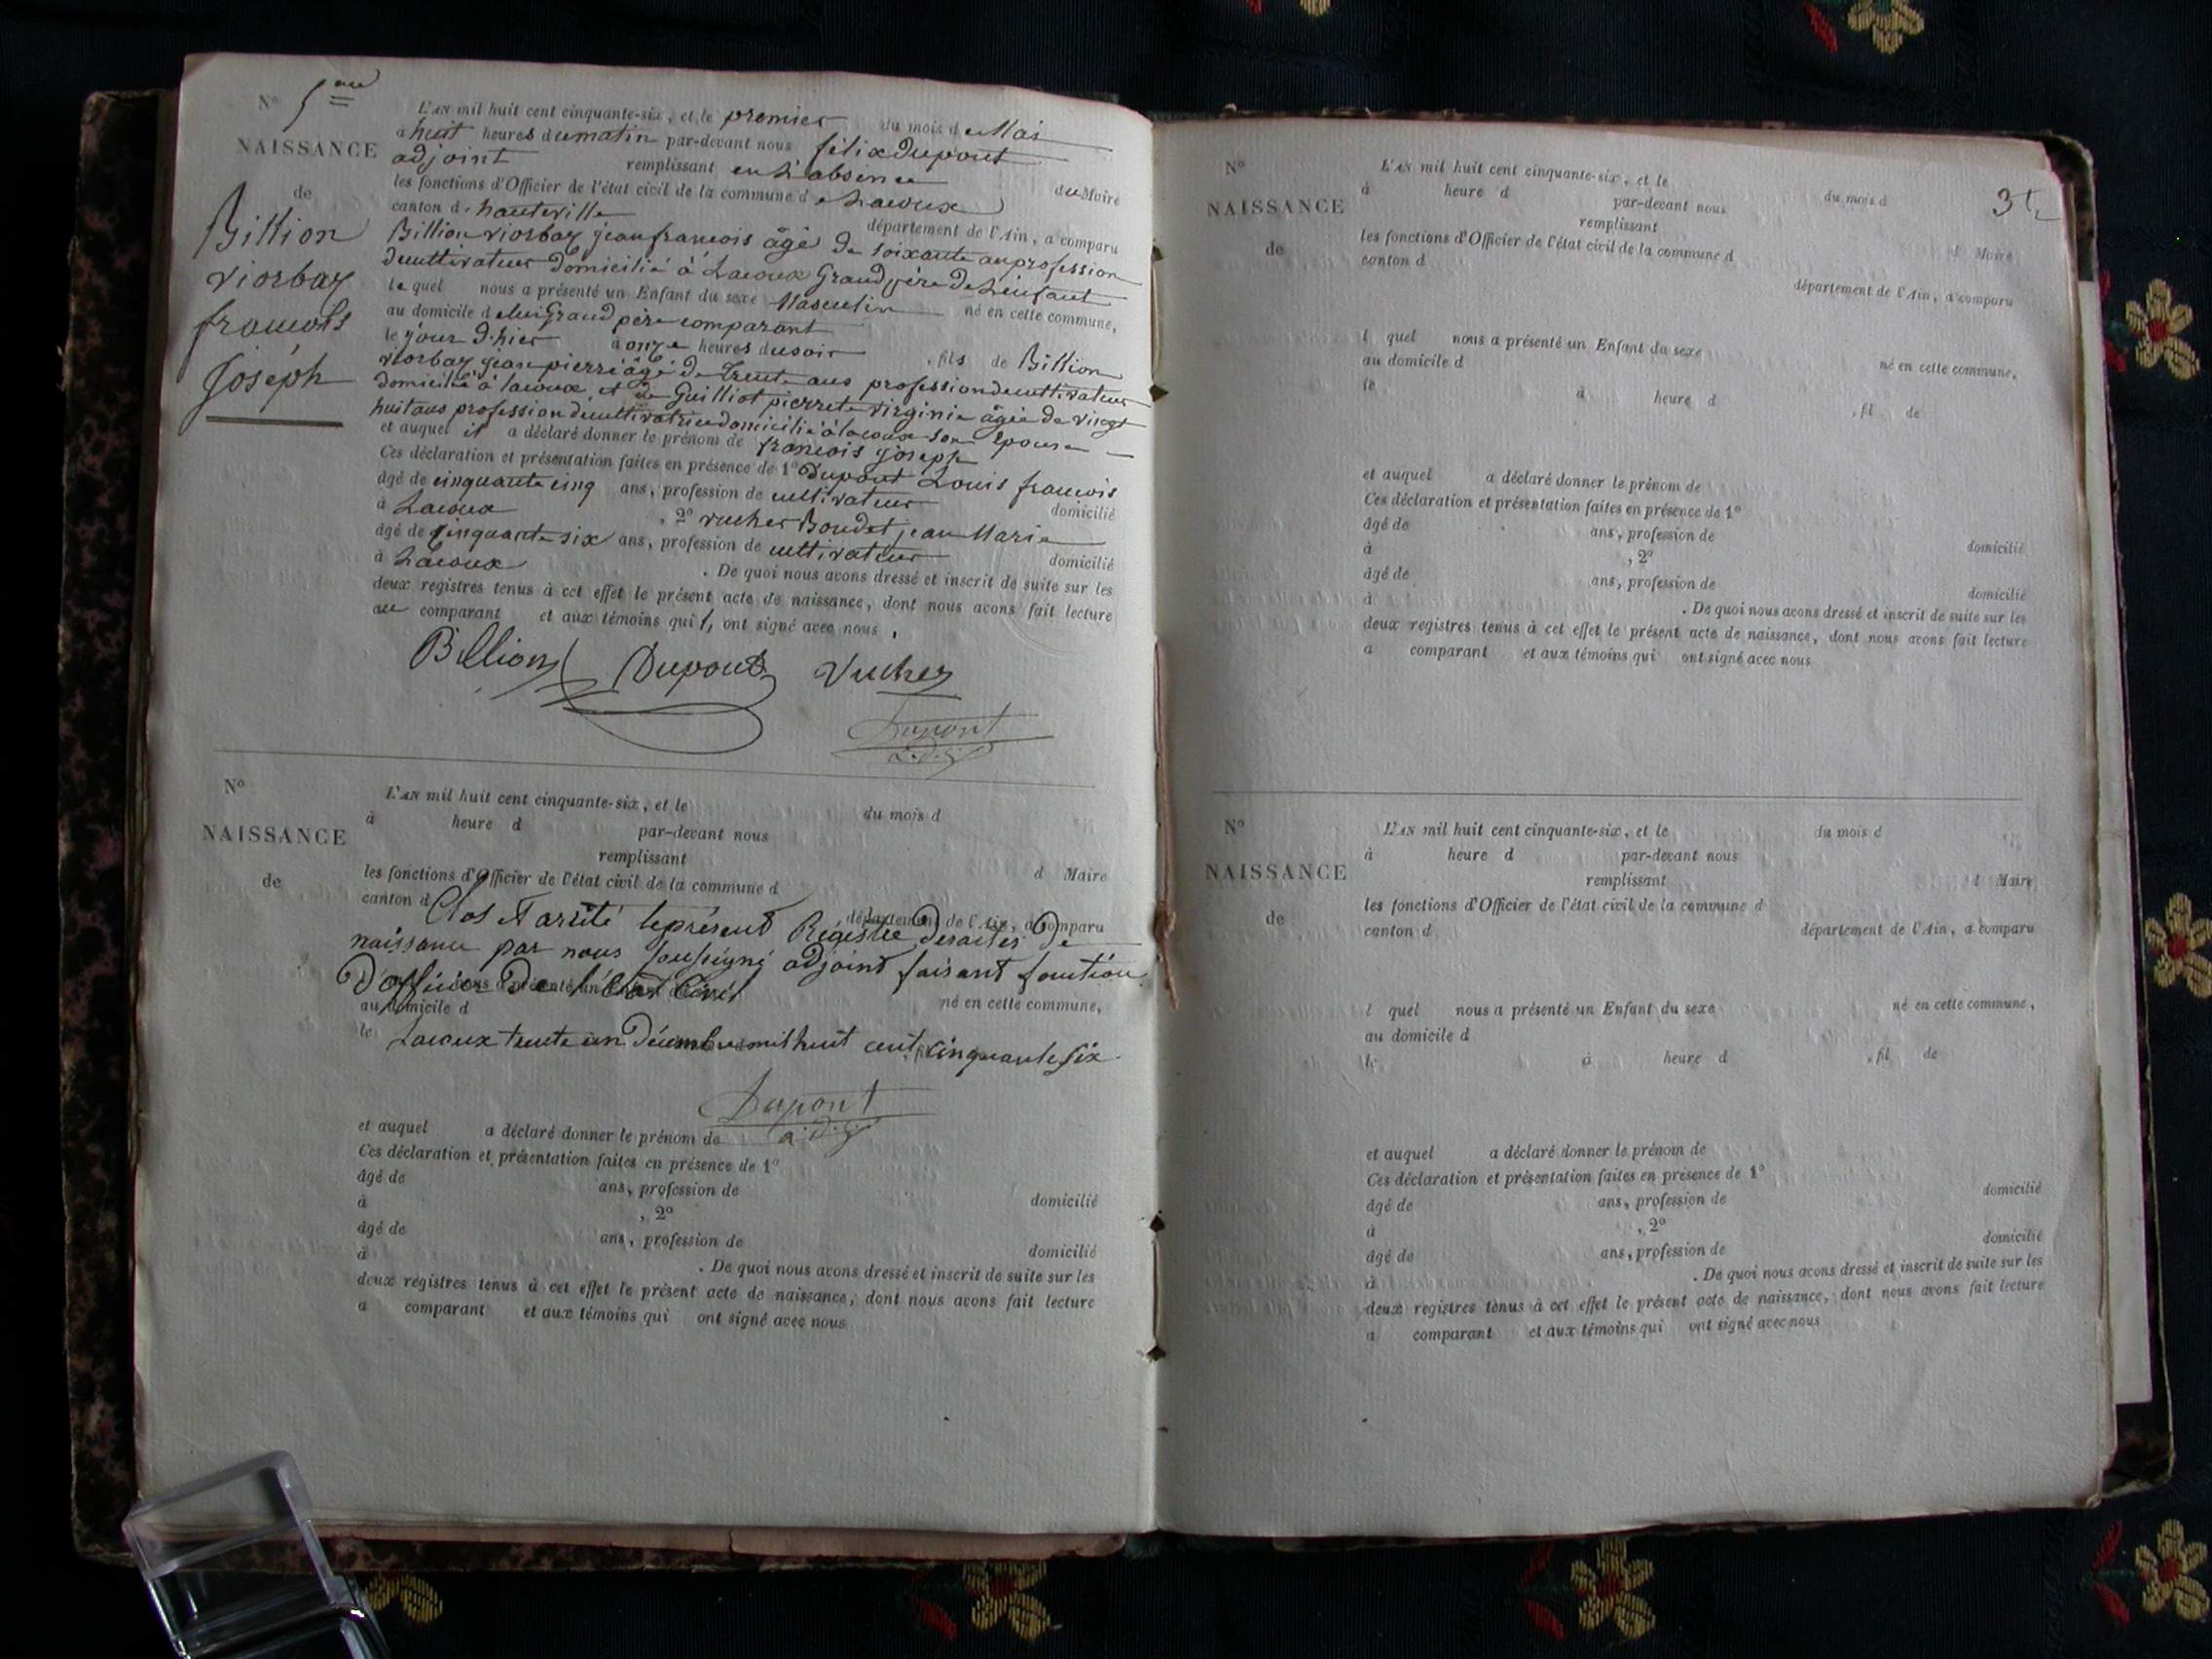 No 5 me
NAISSANCE
de
Billion
Viorbaz
françois
Joseph
L'AN mil huit cent cinquante-six, et le premier du mois de Mai
à huit heures du matin par-devant nous félix Dupont
adjoint remplissant en L'absence du Maire
les fonctions d'Officier de l'état civil de la commune de Lacoux
canton d hauteville département de l'Ain, a comparu
Billion viorbaz jean françois âgé de soixante an profession
de cultivateur domicilié à Lacoux Grand père de L'enfant
le quel nous a présenté un Enfant du sexe Masculin né en cette commune,
au domicile de lui Grand père comparant
le jour d'hier à onze heures du soir , fils de Billion
viorbaz jean pierre âgé de Trente ans profession de cultivateur
domicilié à lacoux et de Guilliot pierrette virginie âgée de vingt
huit ans profession de cultivatrice domicilié à lacoux son Epouse
et auquel il a déclaré donner le prénom de françois joseph
Ces déclaration et présentation faites en présence de 1º Dupont Louis françois
âgé de cinquante cinq ans, profession de cultivateur domicilié
à Lacoux , 2º vucher Boudet jean Marie
âgé de cinquante six ans, profession de cultivateur domicilié
à Lacoux . De quoi nous avons dressé et inscrit de suite sur les
deux registres tenus à cet effet le présent acte de naissance, dont nous avons fait lecture
au comparant et aux témoins qui ont signé avec nous.
Billion Dupont Vucher
Dupont
a.d.j
No
NAISSANCE
de
L'AN mil huit cent cinquante-six, et le du mois d
à heure d par-devant nous
remplissant d Maire
les fonctions d'Officier de l'état civil de la commune d
canton d département de l'Ain, a comparu
Clos et arrêté le présent Registre des actes de
naissance par nous soussigné adjoint faisant fonction
D'officier De l'état Civil
au domicile d né en cette commune,
le
Lacoux trente un Décembre mil huit cent cinquante six.
Dupont
a.d.j
et auquel a déclaré donner le prénom de
Ces déclaration et présentation faites en présence de 1º
âgé de ans, profession de domicilié
à , 2º
âgé de ans, profession de domicilié
à . De quoi nous avons dressé et inscrit de suite sur les
deux registres tenus à cet effet le présent acte de naissance, dont nous avons fait lecture
a comparant et aux témoins qui ont signé avec nous
No
NAISSANCE
de
L'AN mil huit cent cinquante-six, et le du mois d
à heure d par-devant nous
remplissant d Maire
les fonctions d'Officier de l'état civil de la commune d
canton d
département de l'Ain, a comparu
l quel nous a présenté un Enfant du sexe
au domicile d né en cette commune,
le à heure d , fil de
et auquel a déclaré donner le prénom de
Ces déclaration et présentation faites en présence de 1º
âgé de ans, profession de domicilié
à , 2º
âgé de ans, profession de domicilié
à . De quoi nous avons dressé et inscrit de suite sur les
deux registres tenus à cet effet le présent acte de naissance, dont nous avons fait lecture
a comparant et aux témoins qui ont signé avec nous
No
NAISSANCE
de
L'AN mil huit cent cinquante-six, et le du mois d
à heure d par-devant nous
remplissant d Maire
les fonctions d'Officier de l'état civil de la commune d
canton d département de l'Ain, a comparu
l quel nous a présenté un Enfant du sexe né en cette commune,
au domicile d
le à heure d , fil de
et auquel a déclaré donner le prénom de
Ces déclaration et présentation faites en présence de 1º
âgé de ans, profession de domicilié
à , 2º
âgé de ans, profession de domicilié
à . De quoi nous avons dressé et inscrit de suite sur les
deux registres tenus à cet effet le présent acte de naissance, dont nous avons fait lecture
a comparant et aux témoins qui ont signé avec nous